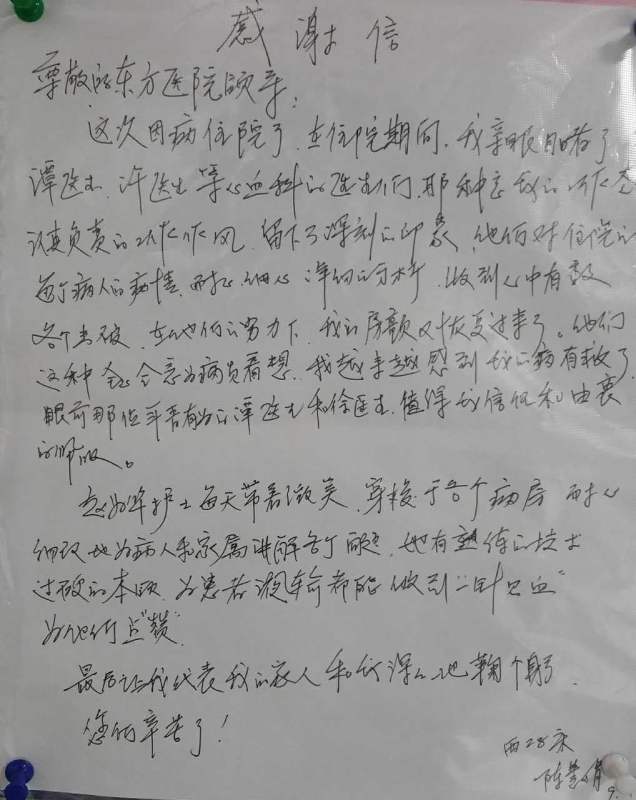 感谢信
尊敬的东方医院领导：
这次因病住院了，在住院期间，我亲眼目睹了
谭医生、许医生等心血科的医生们，那种忘我的工作态
认真负责的工作作风，留下了深刻的印象，他们对住院的
每个病人的病情，耐心、细心、详细的分析，做到心中有数
各个击破，在他们的努力下，我的房颤又恢复过来了。他们
这种全心全意为病员着想，我越来越感到我的病有救了，
眼前那位年青有为的谭医生和徐医生，值得我信任和由衷
的佩服。
护士每天带着微笑，穿梭于各个病房，耐心
细致地为病人和家属讲解各个问题，她有熟练的技术
过硬的本领，为患者都能做到"一针见血"
为他们点"赞"
最后让我代表我的家人和我深深地鞠个躬。
您们辛苦了！
西28床
陈